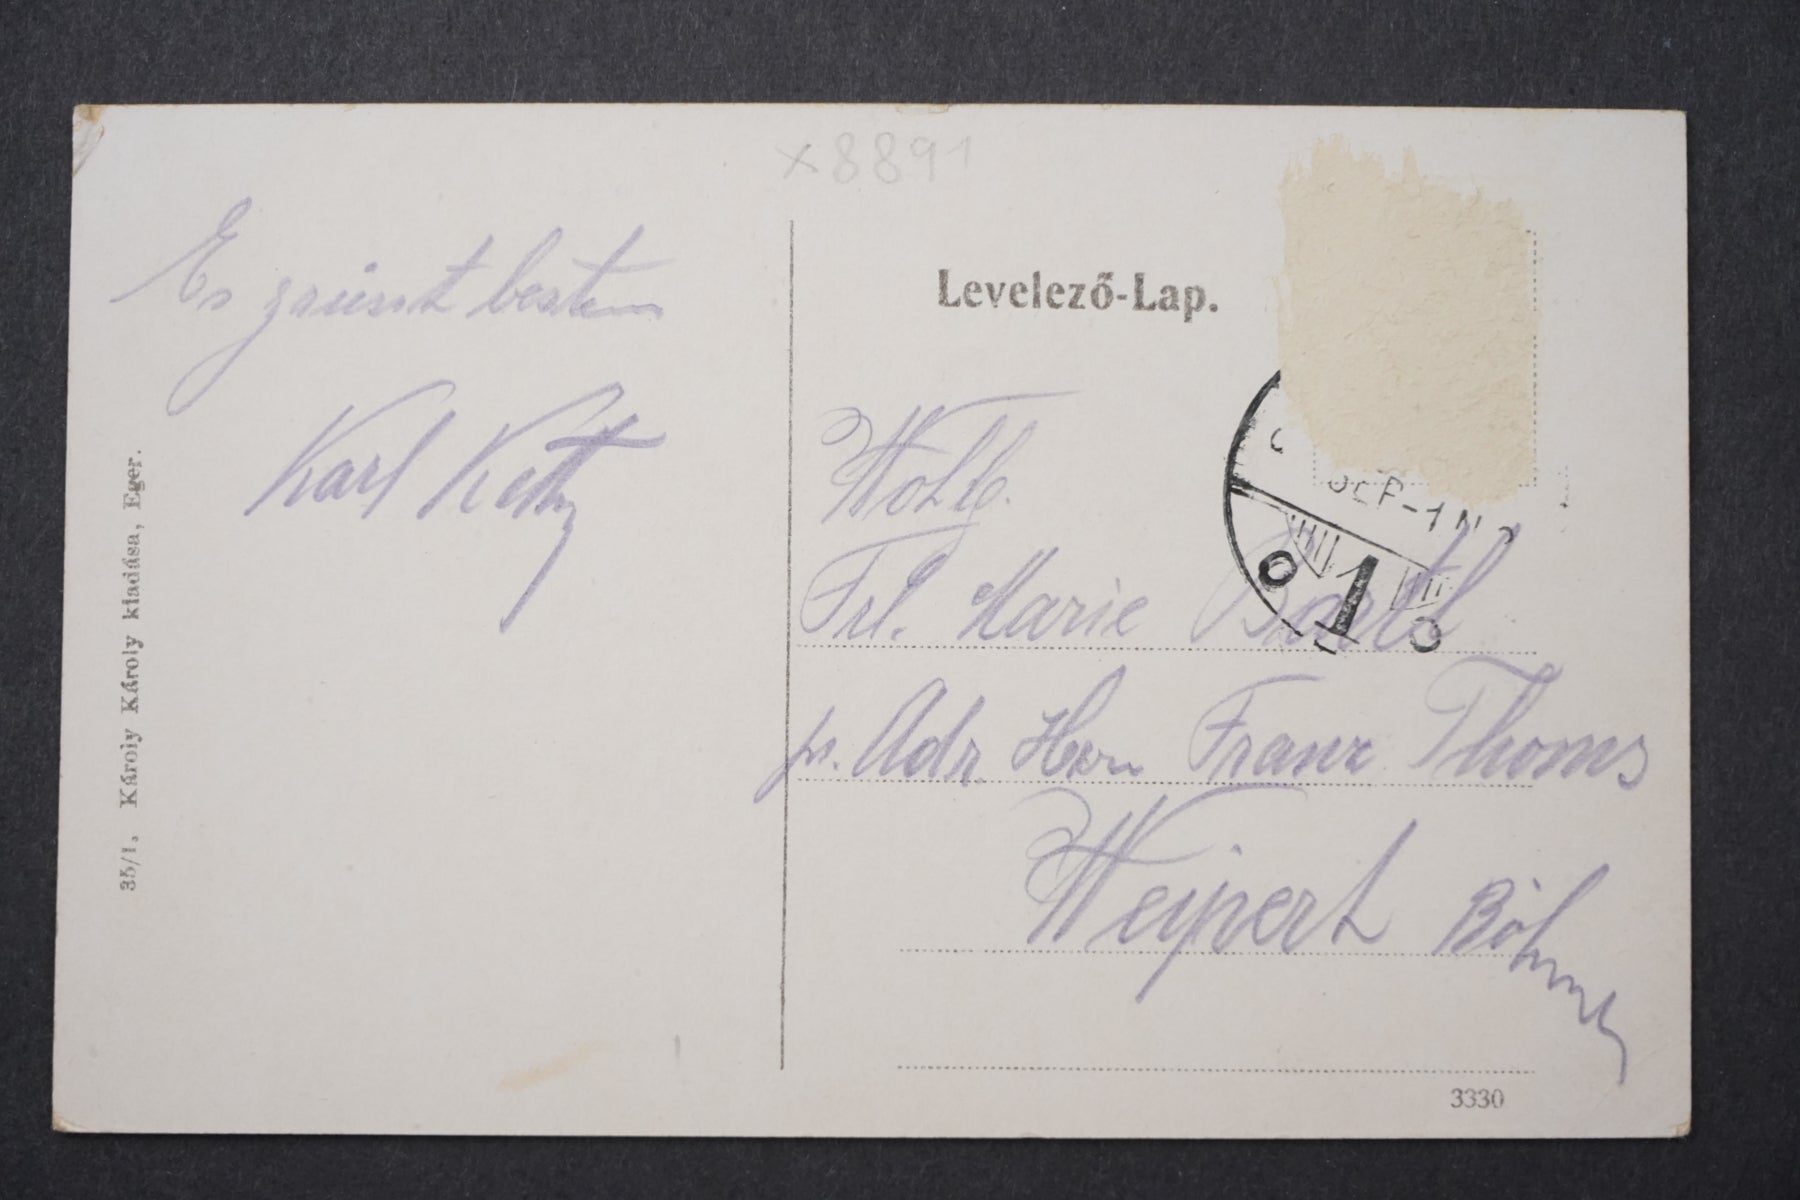 x8891
Es grüsst bestens
Karl
Levelező-Lap.
Wohlg.
Frl. Marie Bartl
pr. Adr. Herrn Franz Thoms
Weipert Böhmen
SEP-1
1
35/1, Károly Károly kiadása, Eger.
3330